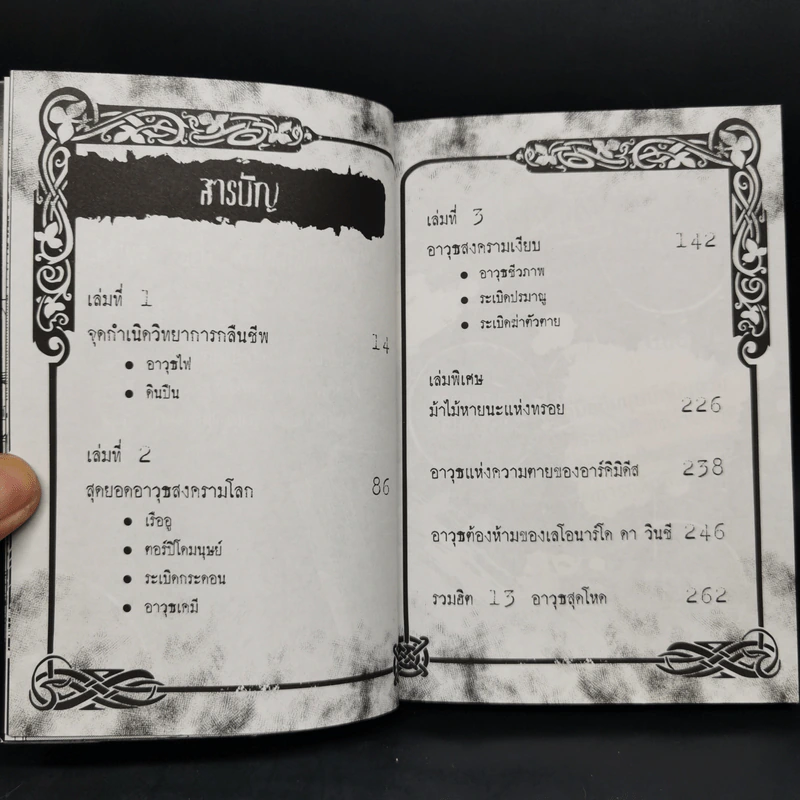 สารบัญ
เล่มที่ 1
จุดกำเนิดวิทยาการกลืนชีพ 14
● อาวุธไฟ
● ดินปืน
เล่มที่ 2
สุดยอดอาวุธสงครามโลก 86
● เรืออู
● ตอร์ปิโดมนุษย์
● ระเบิดกระดอน
● อาวุธเคมี
เล่มที่ 3
อาวุธสงครามเงียบ 142
● อาวุธชีวภาพ
● ระเบิดปรมาณู
● ระเบิดฆ่าตัวตาย
เล่มพิเศษ
ม้าไม้หายนะแห่งทรอย 226
อาวุธแห่งความตายของอาร์คิมิดีส 238
อาวุธต้องห้ามของเลโอนาร์โด ดา วินชี 246
รวมฮิต 13 อาวุธสุดโหด 262